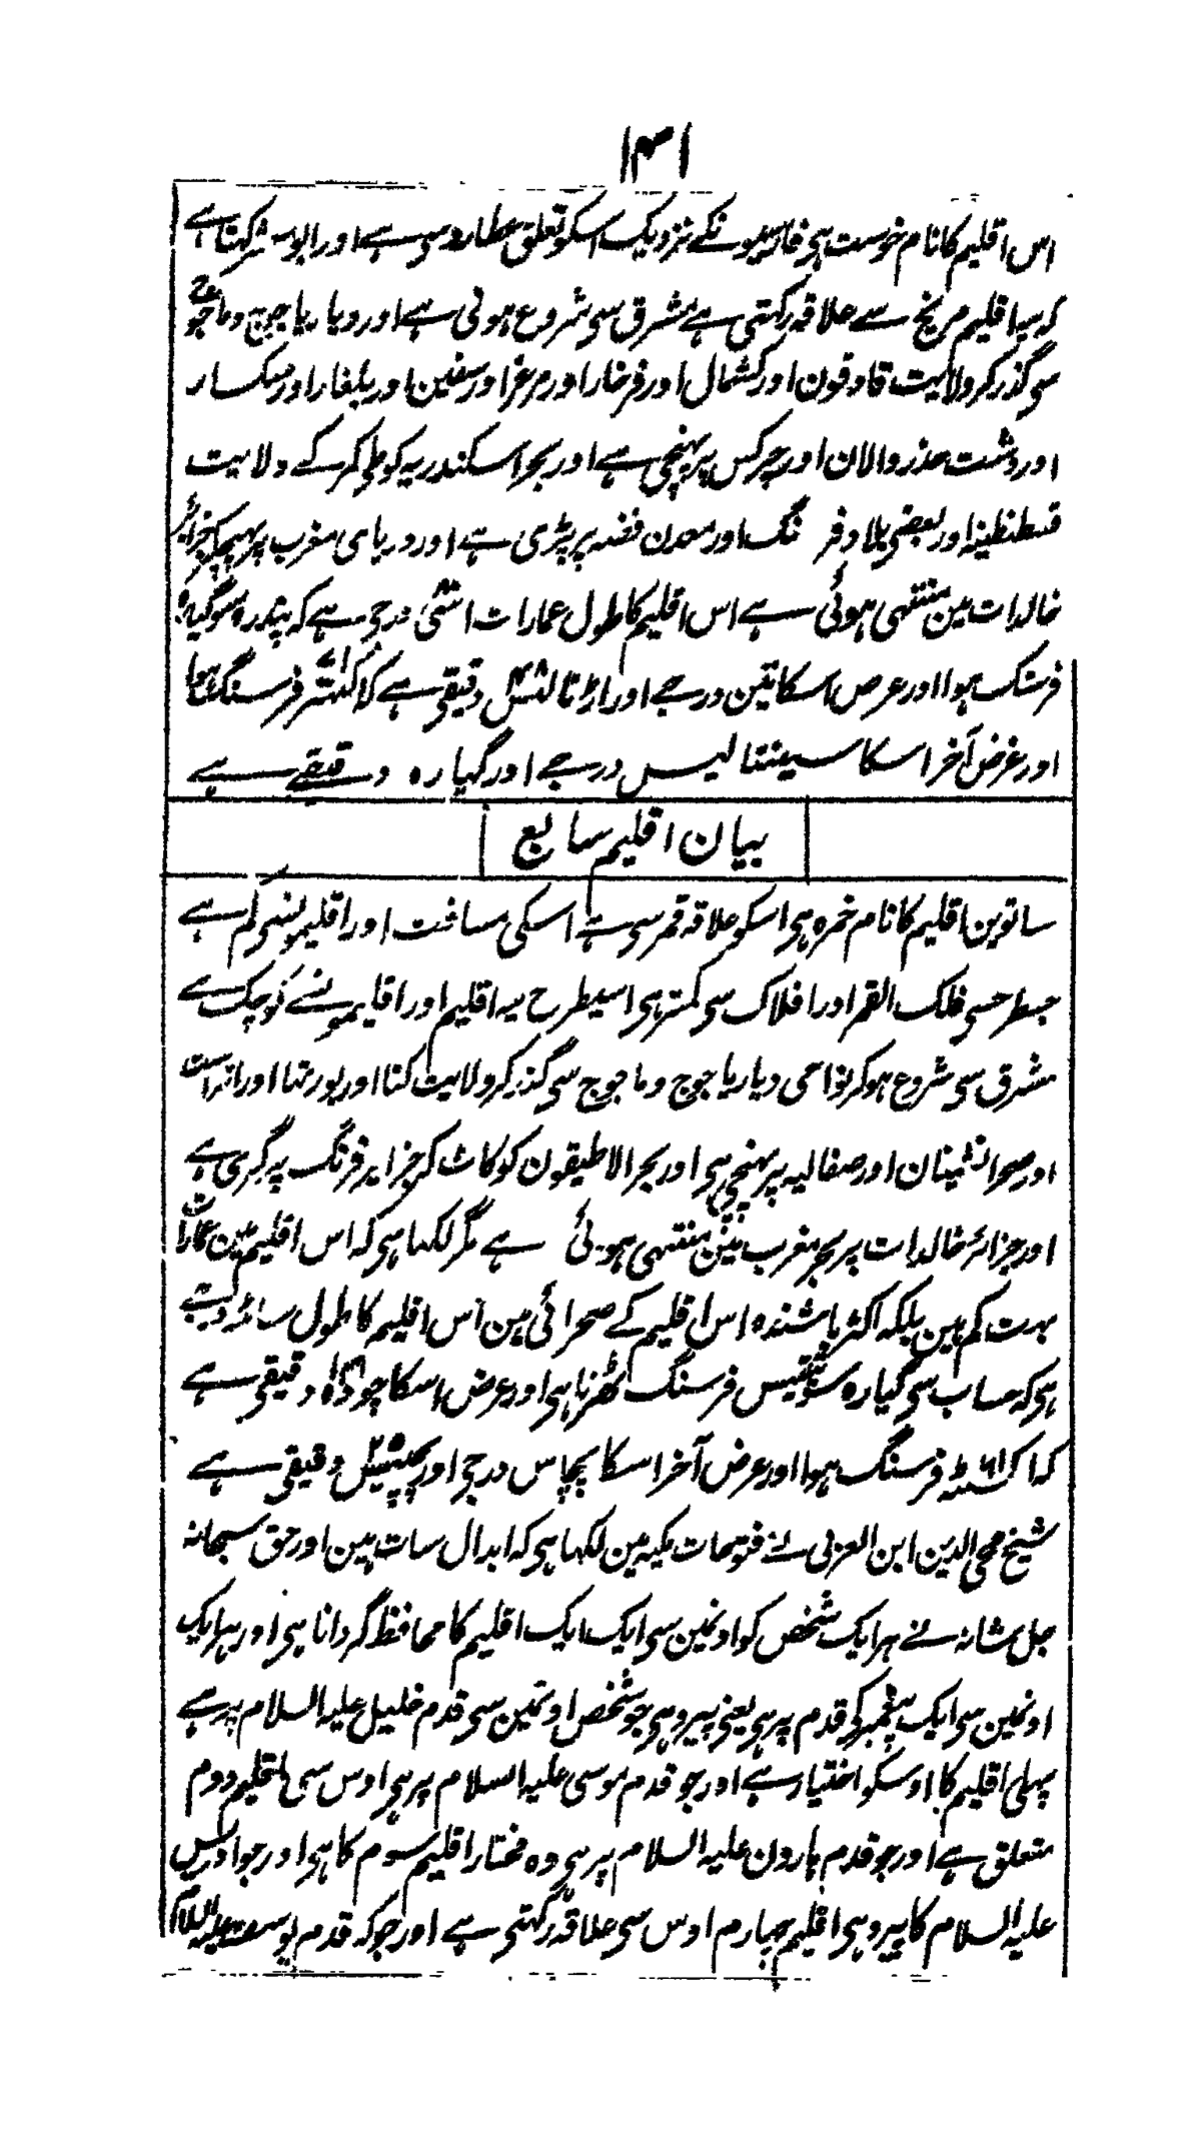 ۱۳۱
اس اقلیم کا نام خوست ہی فارسیونکے نزدیک اسکو تعلق عطارد سی ہے اور ابو معشر کہتا ہے
کہ یہ اقلیم مریخ سے علاقہ رکہتی ہے مشرق سی شروع ہوتی ہے اور دیار یاجوج وماجوج
سی گذر کر ولایت قاوقون اور کشمال اور فرخار اور مرغز اور سفین اور بلغار اور سکسار
اور دشت خذر والان اور چرکس پر پہنچی ہے اور بحر اسکندریہ کو طی کر کے ولایت
قسطنطنیہ اور بعضی بلاد فرنگ اور معدن فضہ پر پڑی ہے اور دریای مغرب پر پہنچکر جزائر
خالدات مین منتہی ہوئی ہے اس اقلیم کا طول عمارات اسّی درجی ہے کہ پندرہ سو گیارہ
فرسنگ ہوا اور عرض اسکا تین درجے اور اڑتالیس دقیقی ہے کہ اکہتر فرسنگ ہوا
اور عرض آخر اسکا سینتالیس درجے اور گیارہ دقیقے ہے
بیان اقلیم سابع
ساتوین اقلیم کا نام خمرہ ہی اسکو علاقہ قمر سی ہے اسکی مسافت اور اقلیمونسی کم ہے
جسطرحسی فلک القمر اور افلاک سی کمتر ہی اسیطرح یہ اقلیم اور اقلیمونسے کوچک ہے
مشرق سی شروع ہوکر نواحی دیار یاجوج وماجوج سی گذر کر ولایت کنا اور بورتہا اور
اور صحرا نشینان اور صفالیہ پر پہنچی ہی اور بحر الاطیقون کو کاٹ کر جزایر فرنگ پر گری ہے
اور جزائر خالدات پر بحر مغرب مین منتہی ہوئی ہے مگر لکہا ہی کہ اس اقلیم مین عمارات
بہت کم ہین بلکہ اکثر باشندہ اس اقلیم کے صحرائی ہین اس اقلیم کا طول ساٹہ درجے
ہی کہ حساب سی گیارہ سو تینتیس فرسنگ ٹہرتا ہی اور عرض اسکا چودہ دقیقی ہے
کہ اکسٹہ فرسنگ ہوا اور عرض آخر اسکا پچاس درجی اور پچیس دقیقی ہے
شیخ محی الدین ابن العربی نے فتوحات مکیہ مین لکہا ہی کہ ابدال سات ہین اور حق سبحانہ
جل شانہ نے ہر ایک شخص کو اونمین سی ایک ایک اقلیم کا محافظ گردانا ہی اور ہر ایک
اونمین سی ایک پیغمبر کی قدم پر ہی یعنی پیرو ہی جو شخص اونمین سی قدم خلیل علیہ السلام پر ہے
پہلی اقلیم کا اوسکو اختیار ہے اور جو قدم موسی علیہ السلام پر ہی اوس سی اقلیم دوم
متعلق ہے اور جو قدم ہارون علیہ السلام پر ہی وہ مختار اقلیم سوم کا ہی اور جو ادریس
علیہ السلام کا پیرو ہی اقلیم چہارم اوس سی علاقہ رکہتی ہے اور جو کہ قدم یوسف علیہ السلام